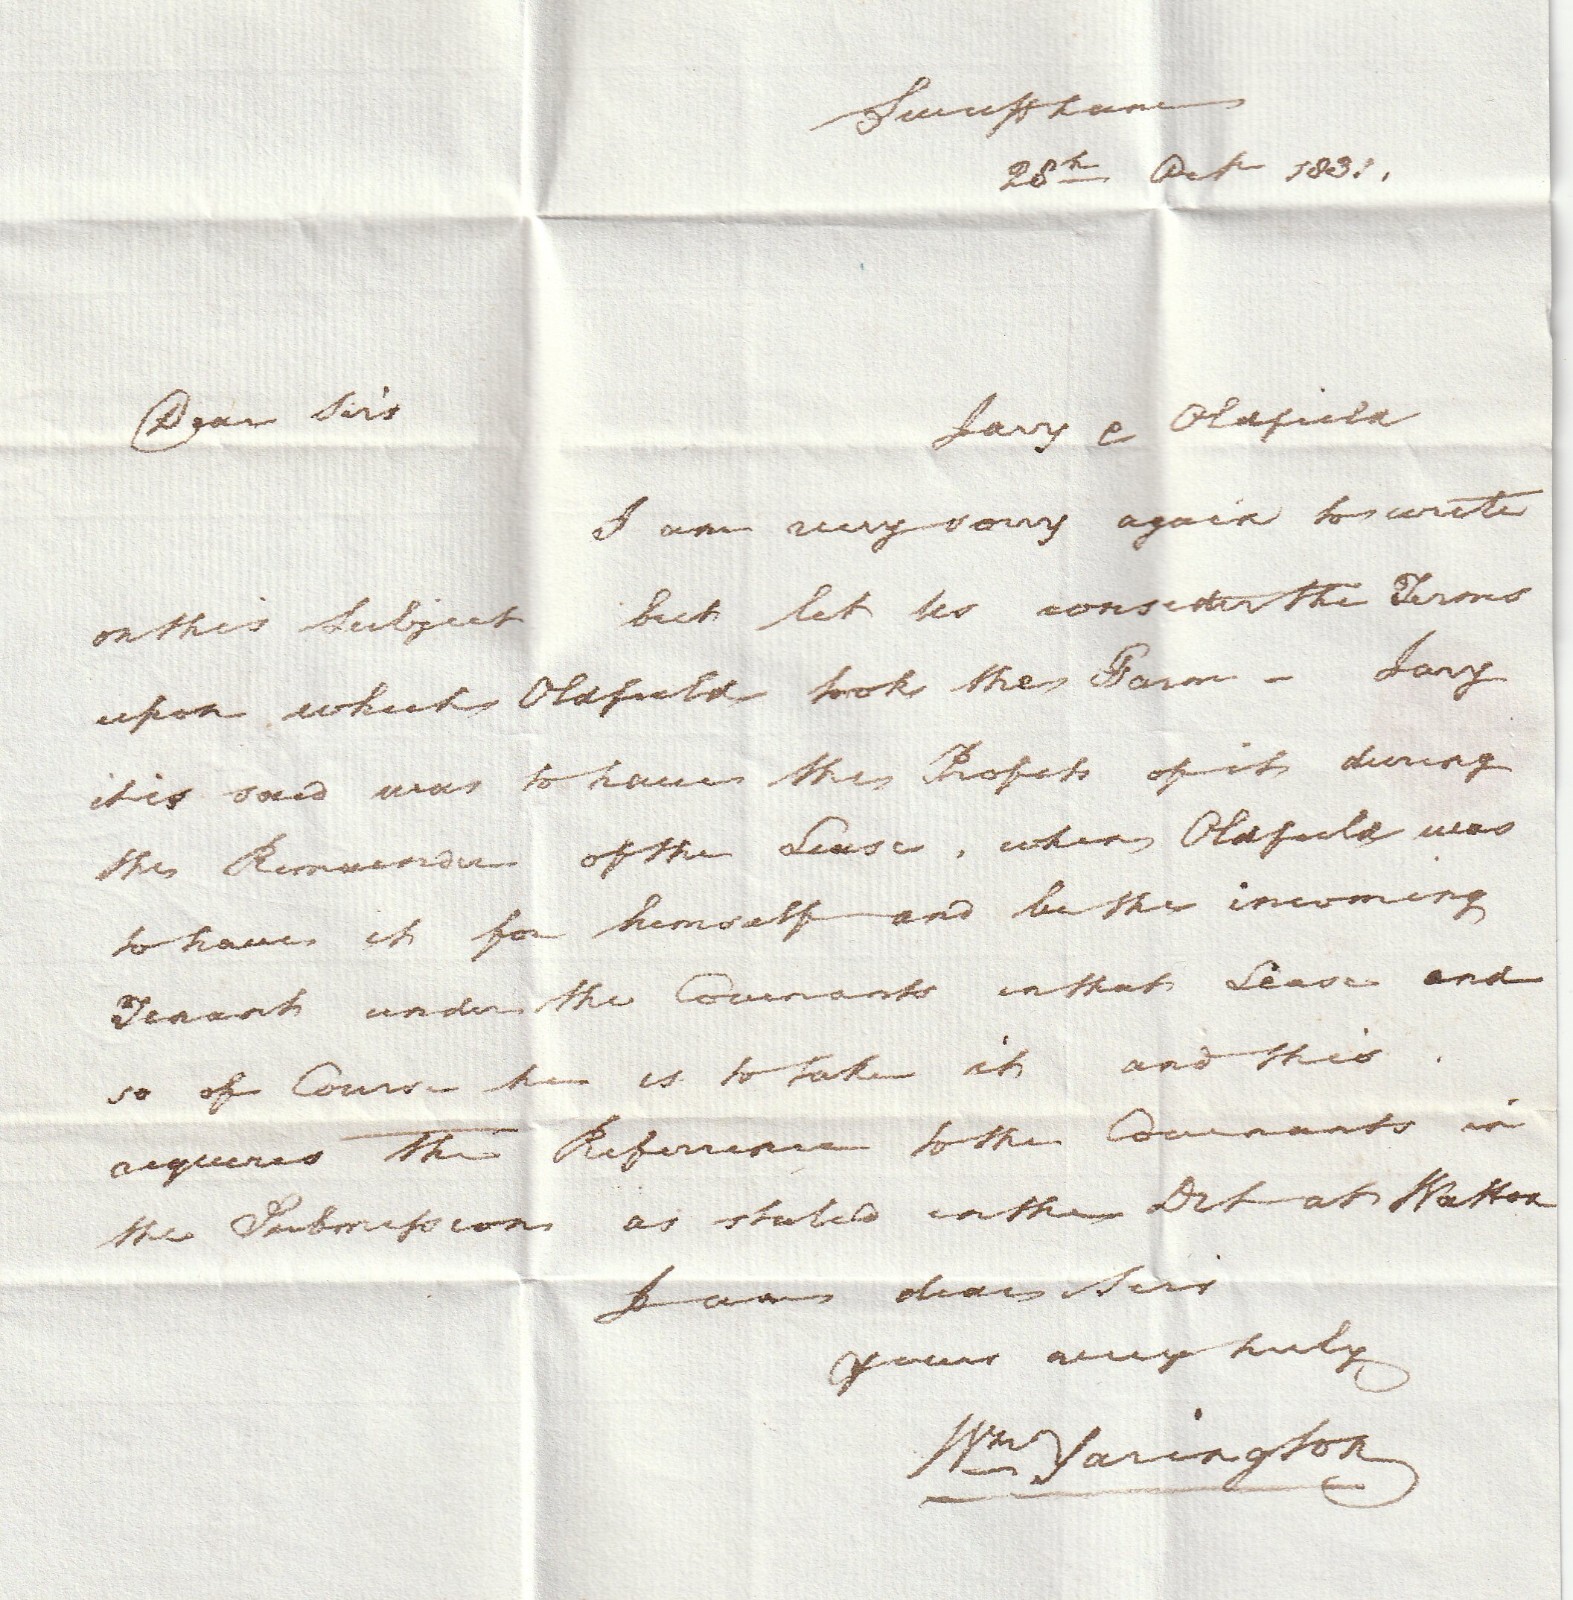 Swaffham
28th Octr 1831.
Dear Sirs
Jary & Oldfield
I am very sorry again to write
on this Subject but let us consider the Terms
upon which Oldfield took the Farm - Jary
it is said was to have the Profits of it during
the Remainder of the Lease, when Oldfield was
to have it for himself and be the incoming
Tenant under the Covenants in that Lease and
so of Course he is to take it and this
requires the Reference to the Covenants in
the Submission as stated in the Dft at Watton
I am dear Sirs
yours very truly
Wm Yarington